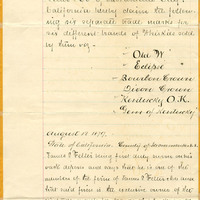 California hereby claims the follow-
ing six separate trade marks for
six different brands of Whiskies sold
by them viz:
Old W
Eclipse
Bourbon Crown
Dixon Crown
Kentucky O.K.
Gem of Kentucky
August 18. 1879.
State of California County of Sacramento
James I Felter being first duly sworn
and says that he is one of the
members of the firm of James I Felter & Co and
that said firm is the exclusive owner of the